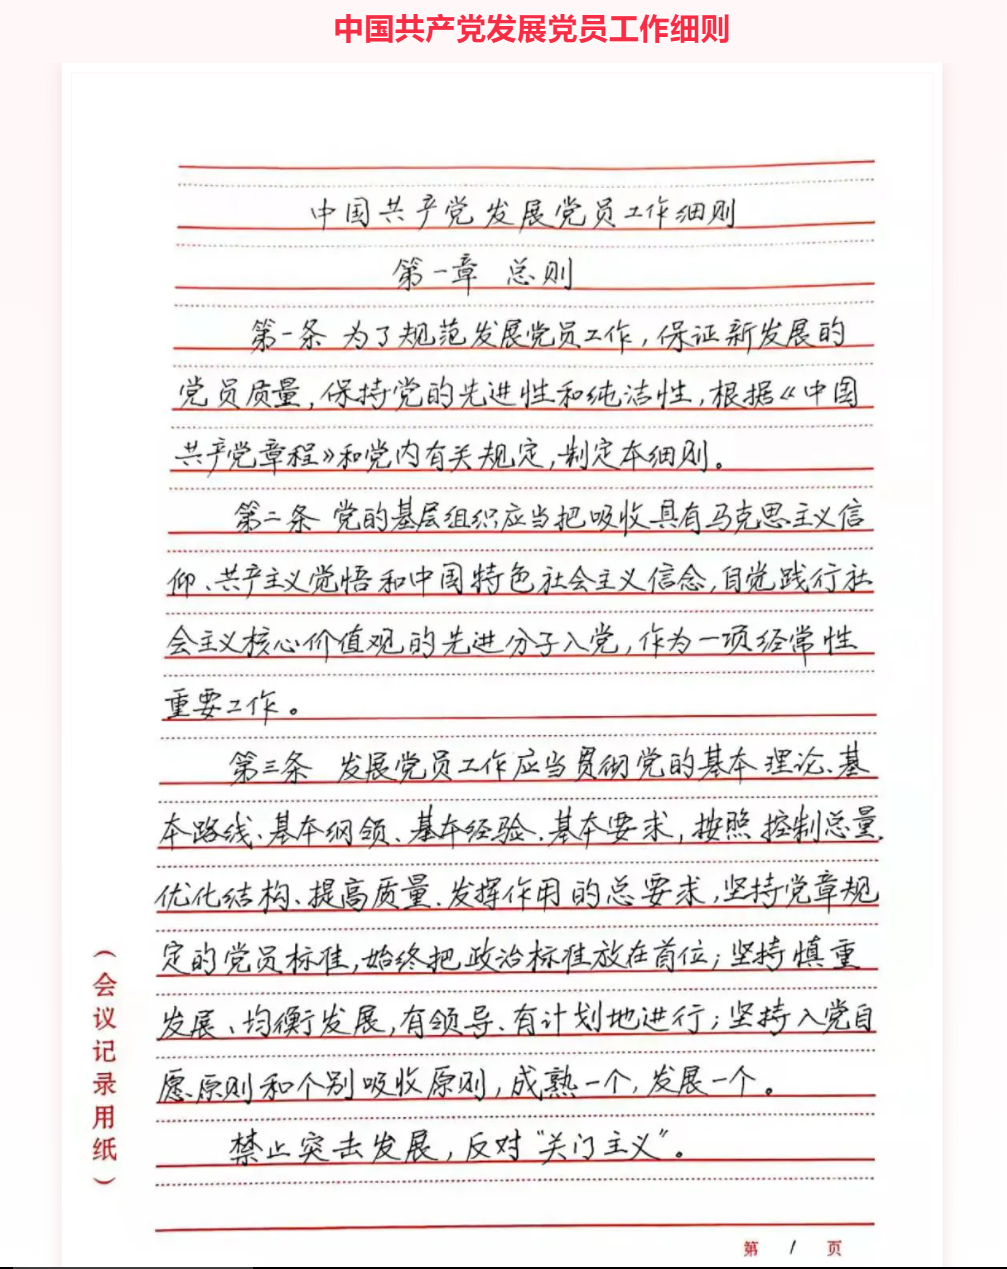 中国共产党发展党员工作细则
中国共产党发展党员工作细则
第一章 总则
第一条 为了规范发展党员工作,保证新发展的
党员质量,保持党的先进性和纯洁性,根据《中国
共产党章程》和党内有关规定,制定本细则。
第二条 党的基层组织应当把吸收具有马克思主义信
仰、共产主义觉悟和中国特色社会主义信念,自觉践行社
会主义核心价值观的先进分子入党,作为一项经常性
重要工作。
第三条 发展党员工作应当贯彻党的基本理论、基
本路线、基本纲领、基本经验、基本要求,按照控制总量、
优化结构、提高质量、发挥作用的总要求,坚持党章规
定的党员标准,始终把政治标准放在首位;坚持慎重
发展、均衡发展,有领导、有计划地进行;坚持入党自
愿原则和个别吸收原则,成熟一个,发展一个。
禁止突击发展,反对“关门主义”。
(会议记录用纸)
第 1 页